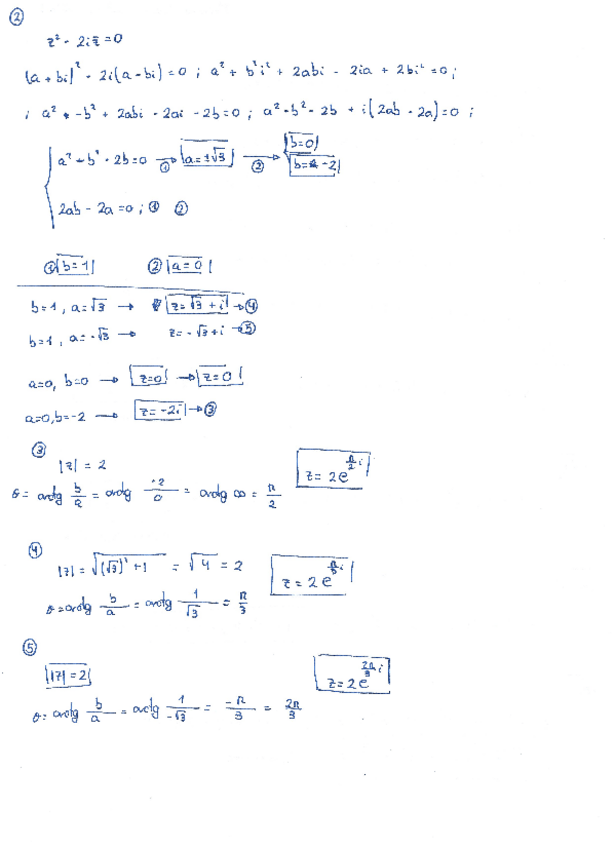 ②
z² - 2i z̄ = 0
(a + bi)² - 2i(a - bi) = 0 ; a² + b²i² + 2abi - 2ia + 2bi² = 0 ;
; a² - b² + 2abi - 2ai - 2b = 0 ; a² - b² - 2b + i(2ab - 2a) = 0 ;
a² - b² - 2b = 0 →① a = ±√3 →② b = 0
b = -2
2ab - 2a = 0 ; ① ②
① b = 1 ② a = 0
b = 1, a = √3 → z = √3 + i → ④
b = 1, a = -√3 → z = -√3 + i → ⑤
a=0, b=0 → z=0 → z=0
a=0, b=-2 → z = -2i → ③
③
|z| = 2 z = 2e^(π/2 i)
θ = arctg b/a = arctg -2/0 = arctg ∞ = π/2
④
|z| = √((√3)² + 1) = √4 = 2 z = 2e^(π/3 i)
θ = arctg b/a = arctg 1/√3 = π/3
⑤
|z| = 2 z = 2e^(2π/3 i)
θ = arctg b/a = arctg 1/-√3 = -π/3 = 2π/3